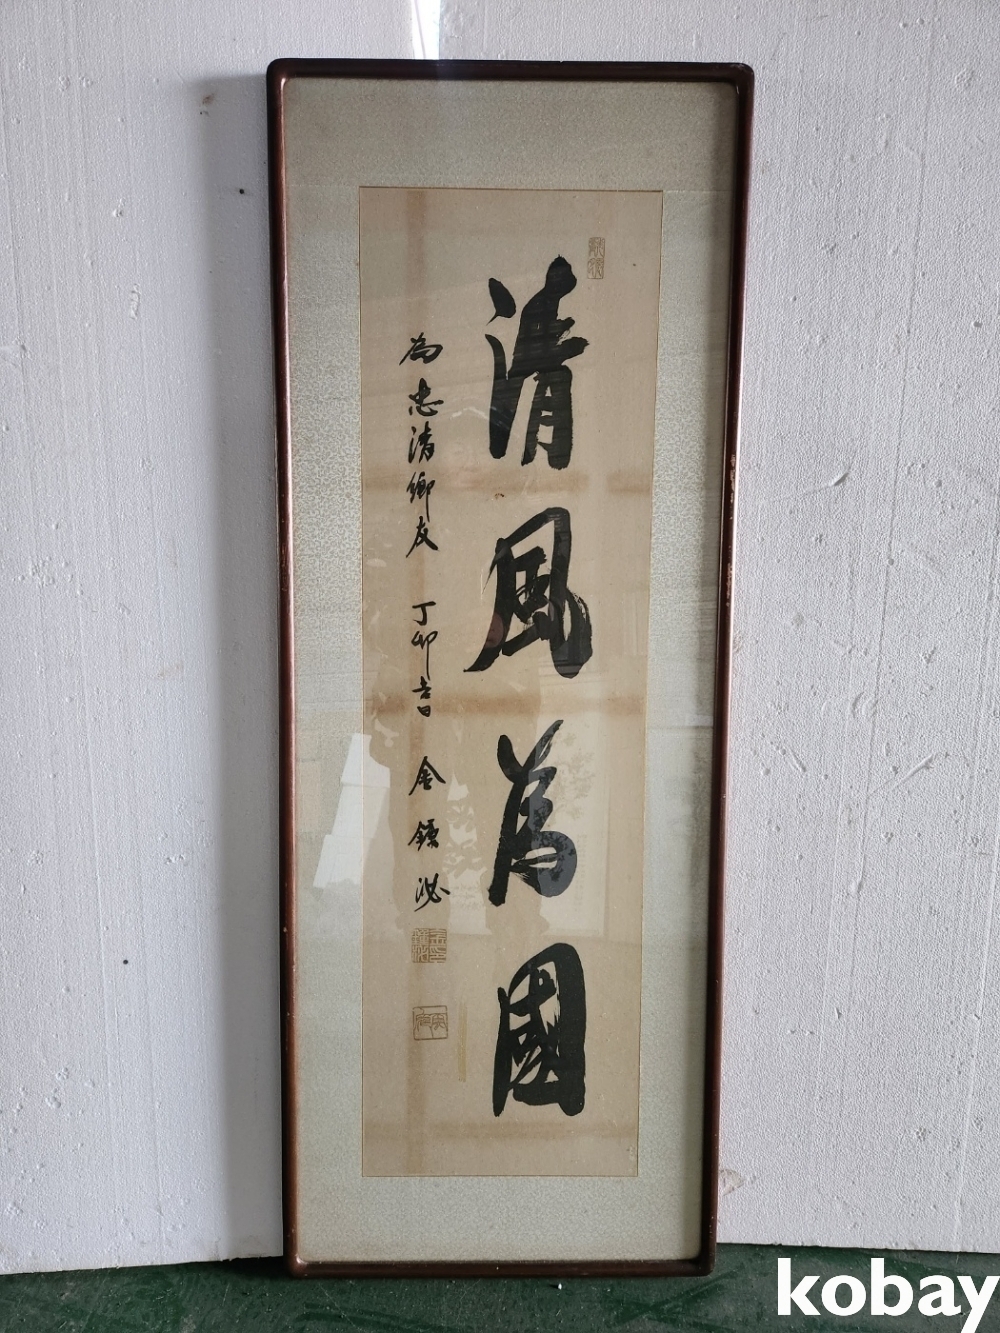 清風為國
為忠清鄉友 丁卯春 金鐸泌
kobay